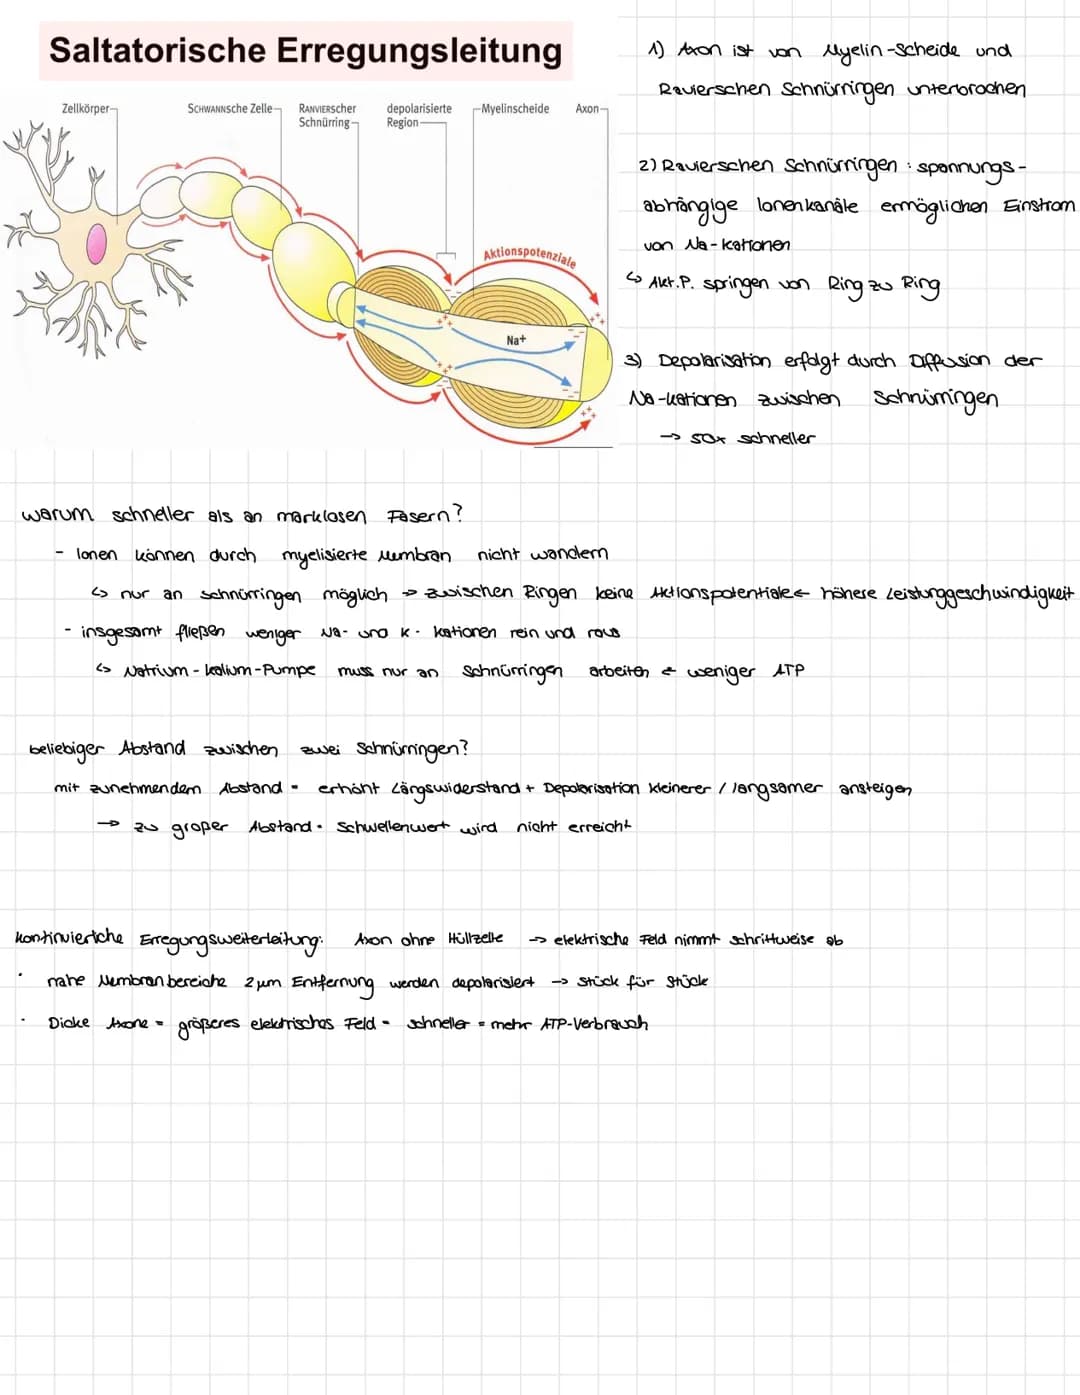 Saltatorische Erregungsleitung
Zellkörper
SCHWANNsche Zelle
RANVIERscher
Schnürring
depolarisierte
Region
Myelinscheide
Axon
Aktionspotenziale
Na+
1) Axon ist von Myelin-Scheide und
Ravierschen Schnürringen unterbrochen
2) Ravierschen Schnürringen : spannungs-
abhängige Ionenkanäle ermöglichen Einstrom
von Na-kationen
↳ Akt.P. springen von Ring zu Ring
3) Depolarisation erfolgt durch Diffusion der
Na-kationen zwischen Schnürringen
→ 50x schneller
warum schneller als an marklosen Fasern?
- Ionen können durch myelisierte Membran nicht wandern
↳ nur an Schnürringen möglich → zwischen Ringen keine Aktionspotentiale ← höhere Leistunggeschwindigkeit
- insgesamt fließen weniger Na- und K- kationen rein und raus
↳ Natrium-kalium-Pumpe muss nur an Schnürringen arbeiten ← weniger ATP
beliebiger Abstand zwischen zwei Schnürringen?
mit zunehmendem Abstand = erhöht Längswiderstand + Depolarisation kleinerer / langsamer ansteigen
→ zu großer Abstand = Schwellenwert wird nicht erreicht
kontinuierliche Erregungsweiterleitung: Axon ohne Hüllzelle → elektrische Feld nimmt schrittweise ab
· nahe Membranbereiche 2 µm Entfernung werden depolarisiert → Stück für Stück
· Dicke Axone = größeres elektrisches Feld = schneller = mehr ATP-Verbrauch